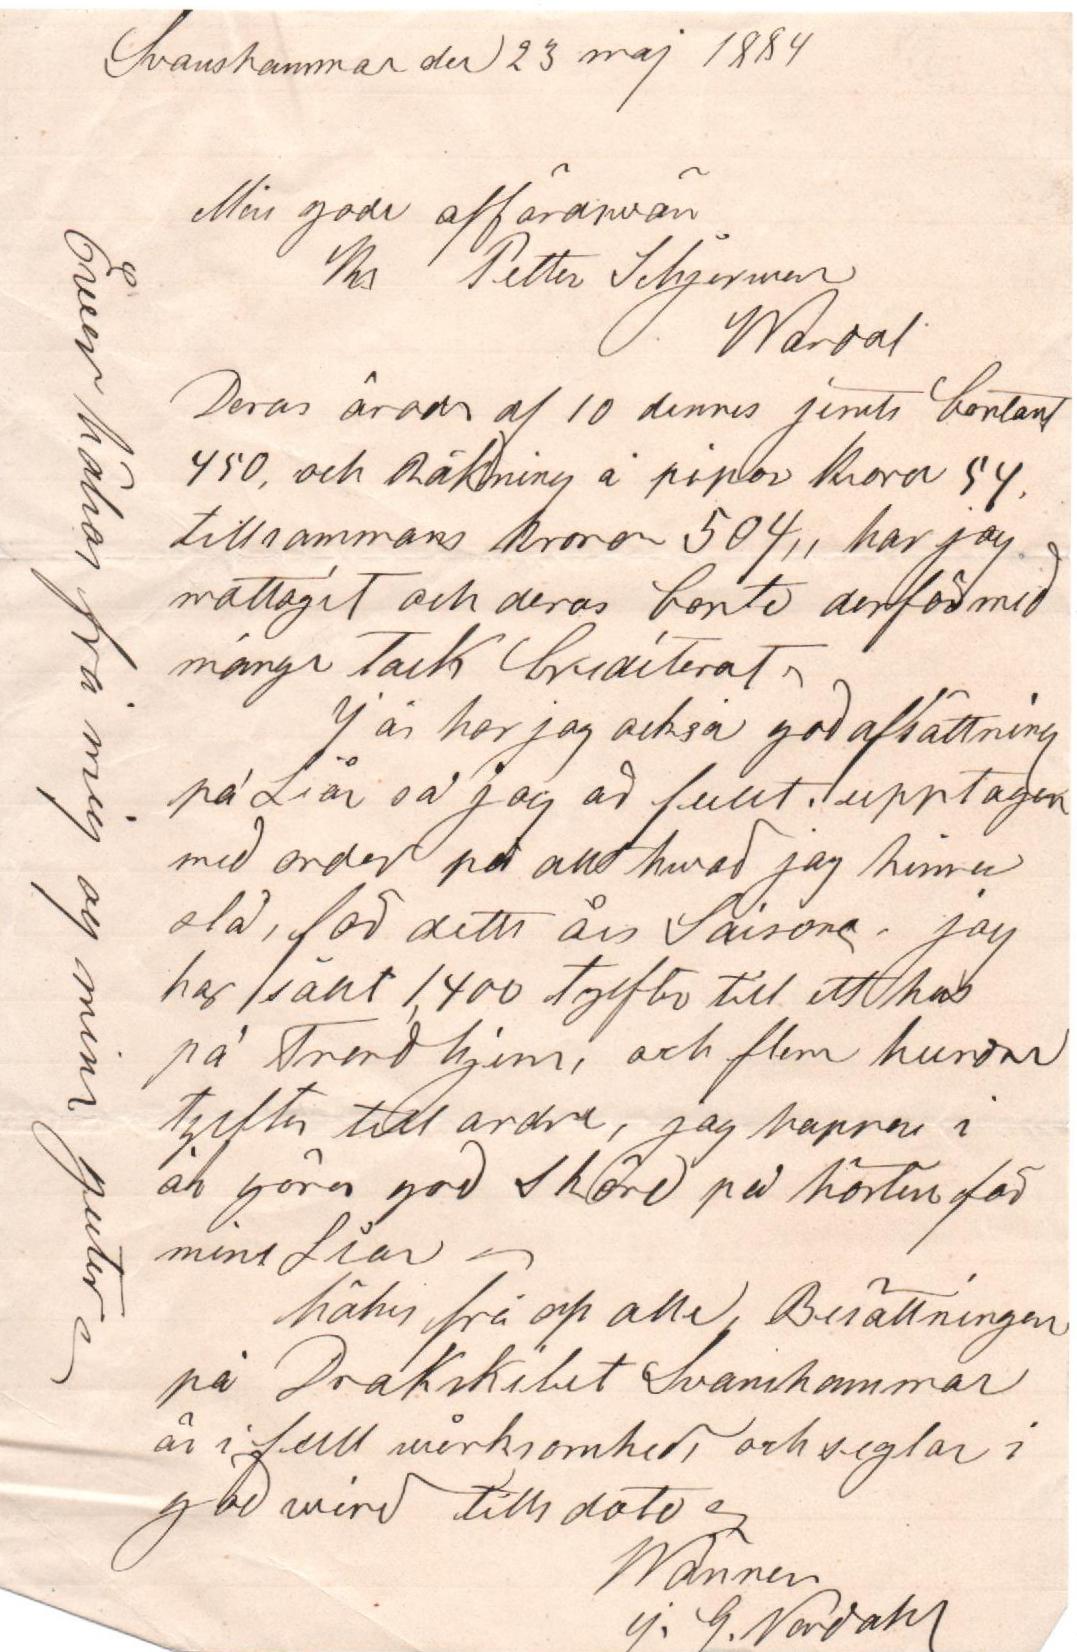 Svanshammar den 23 maj 1884
Min gode affärdsvän
Hr Petter Schjerwen
Wærdal
Deras ärade af 10 dennes jemte Contant
450, och Räkning å pipor Kronor 54,
tillsammans Kronor 504,, har jag
mottagit och deras Conto derför med
mange tack Crediterat
I år har jag också god afsättning
på Liår så jag är fullt upptagen
med order på allt hwad jag hinner
slå, för dette års Saisong. jag
har sålt 1,400 tylfter till ett hus
på Trondhjem, och flere hundra
tylfter till andra, jag happas i
år göra god Skörd på hösten för
mine Liar
Hälsa frå op alle, Besättningen
på Drakskibet Svanshammar
är i full wærksomhed, och seglar i
god wind tills dato
Wännen
J. G. Nordahl
hälsar frå mig og mine guter